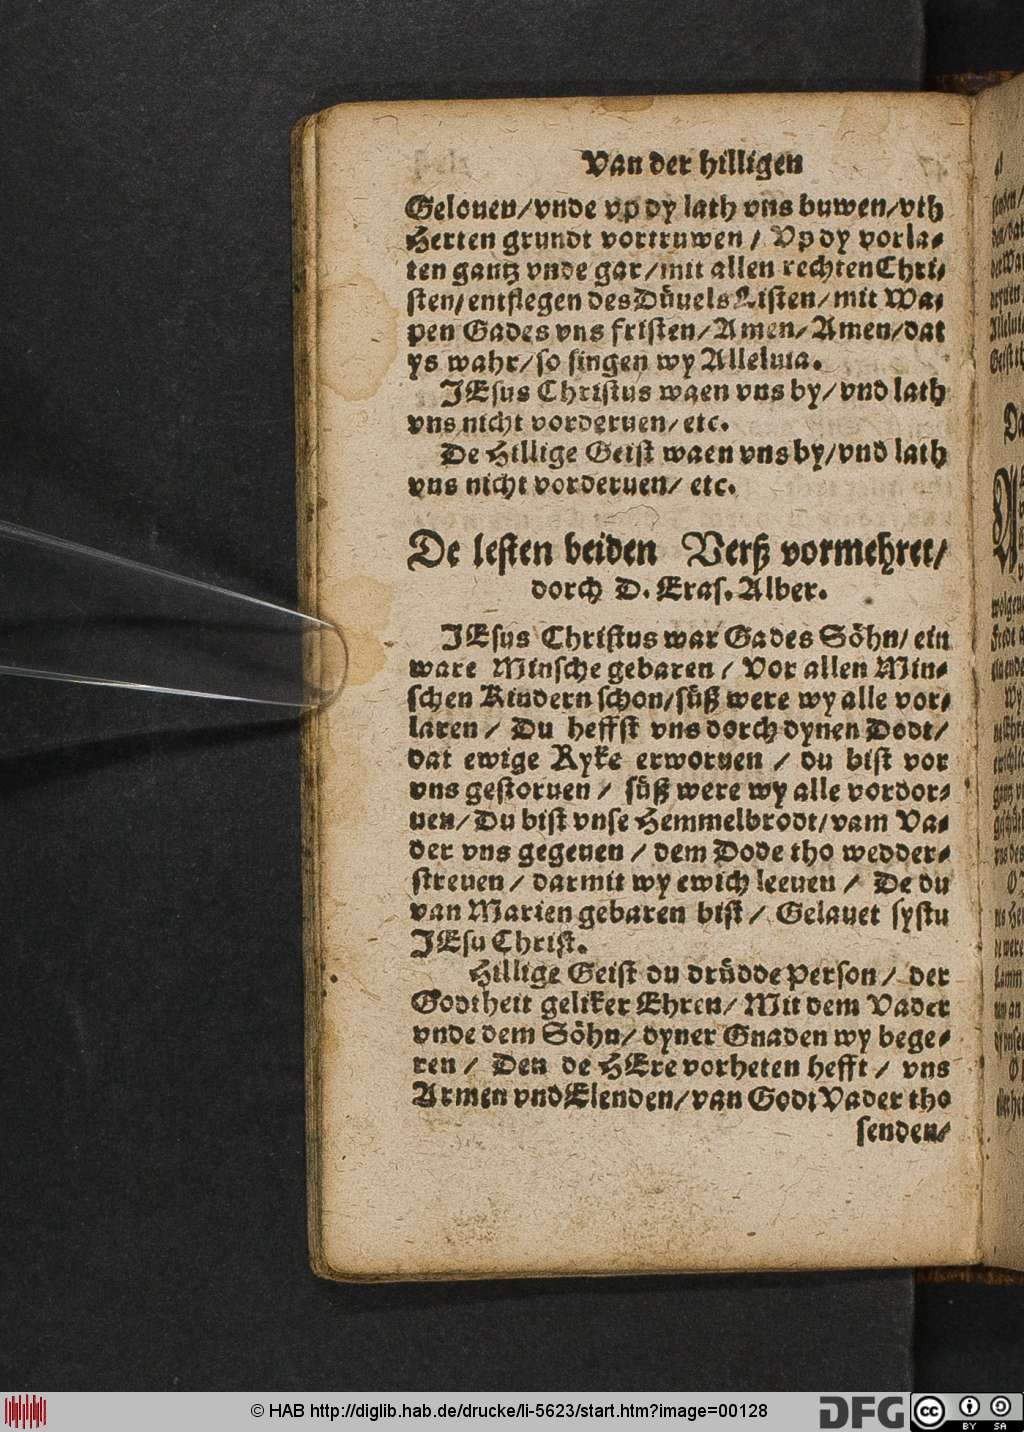 Van der hilligen
Gelouen/vnde vp dy lath vns buwen/vth
Herten grundt vortruwen / Vp dy vorla-
ten gantz vnde gar/mit allen rechten Chri-
sten/entflegen des Düuels Listen/mit Wa-
pen Gades vns fristen/Amen/Amen/dat
ys wahr/so singen wy Alleluia.
JEsus Christus waen vns by/vnd lath
vns nicht vorderuen/etc.
De Hillige Geist waen vns by/vnd lath
vns nicht vorderuen/ etc.
De lesten beiden Verß vormehret/
dorch D. Eras. Alber.
JEsus Christus war Gades Söhn/ein
ware Minsche gebaren / Vor allen Min-
schen Kindern schon/süß were wy alle vor-
laren / Du heffst vns dorch dynen Dodt/
dat ewige Ryke erworuen / du bist vor
vns gestoruen / süß were wy alle vordor-
uen/Du bist vnse Hemmelbrodt/vam Va-
der vns gegeuen / dem Dode tho wedder-
streuen / darmit wy ewich leeuen / De du
van Marien gebaren bist / Gelauet systu
JEsu Christ.
Hillige Geist du drüdde Person / der
Godtheit geliker Ehren/ Mit dem Vader
vnde dem Söhn/ dyner Gnaden wy bege-
ren / Den de HEre vorheten hefft / vns
Armen vnd Elenden/van Godt Vader tho
senden/
© HAB http://diglib.hab.de/drucke/li-5623/start.htm?image=00128
DFG
cc BY SA